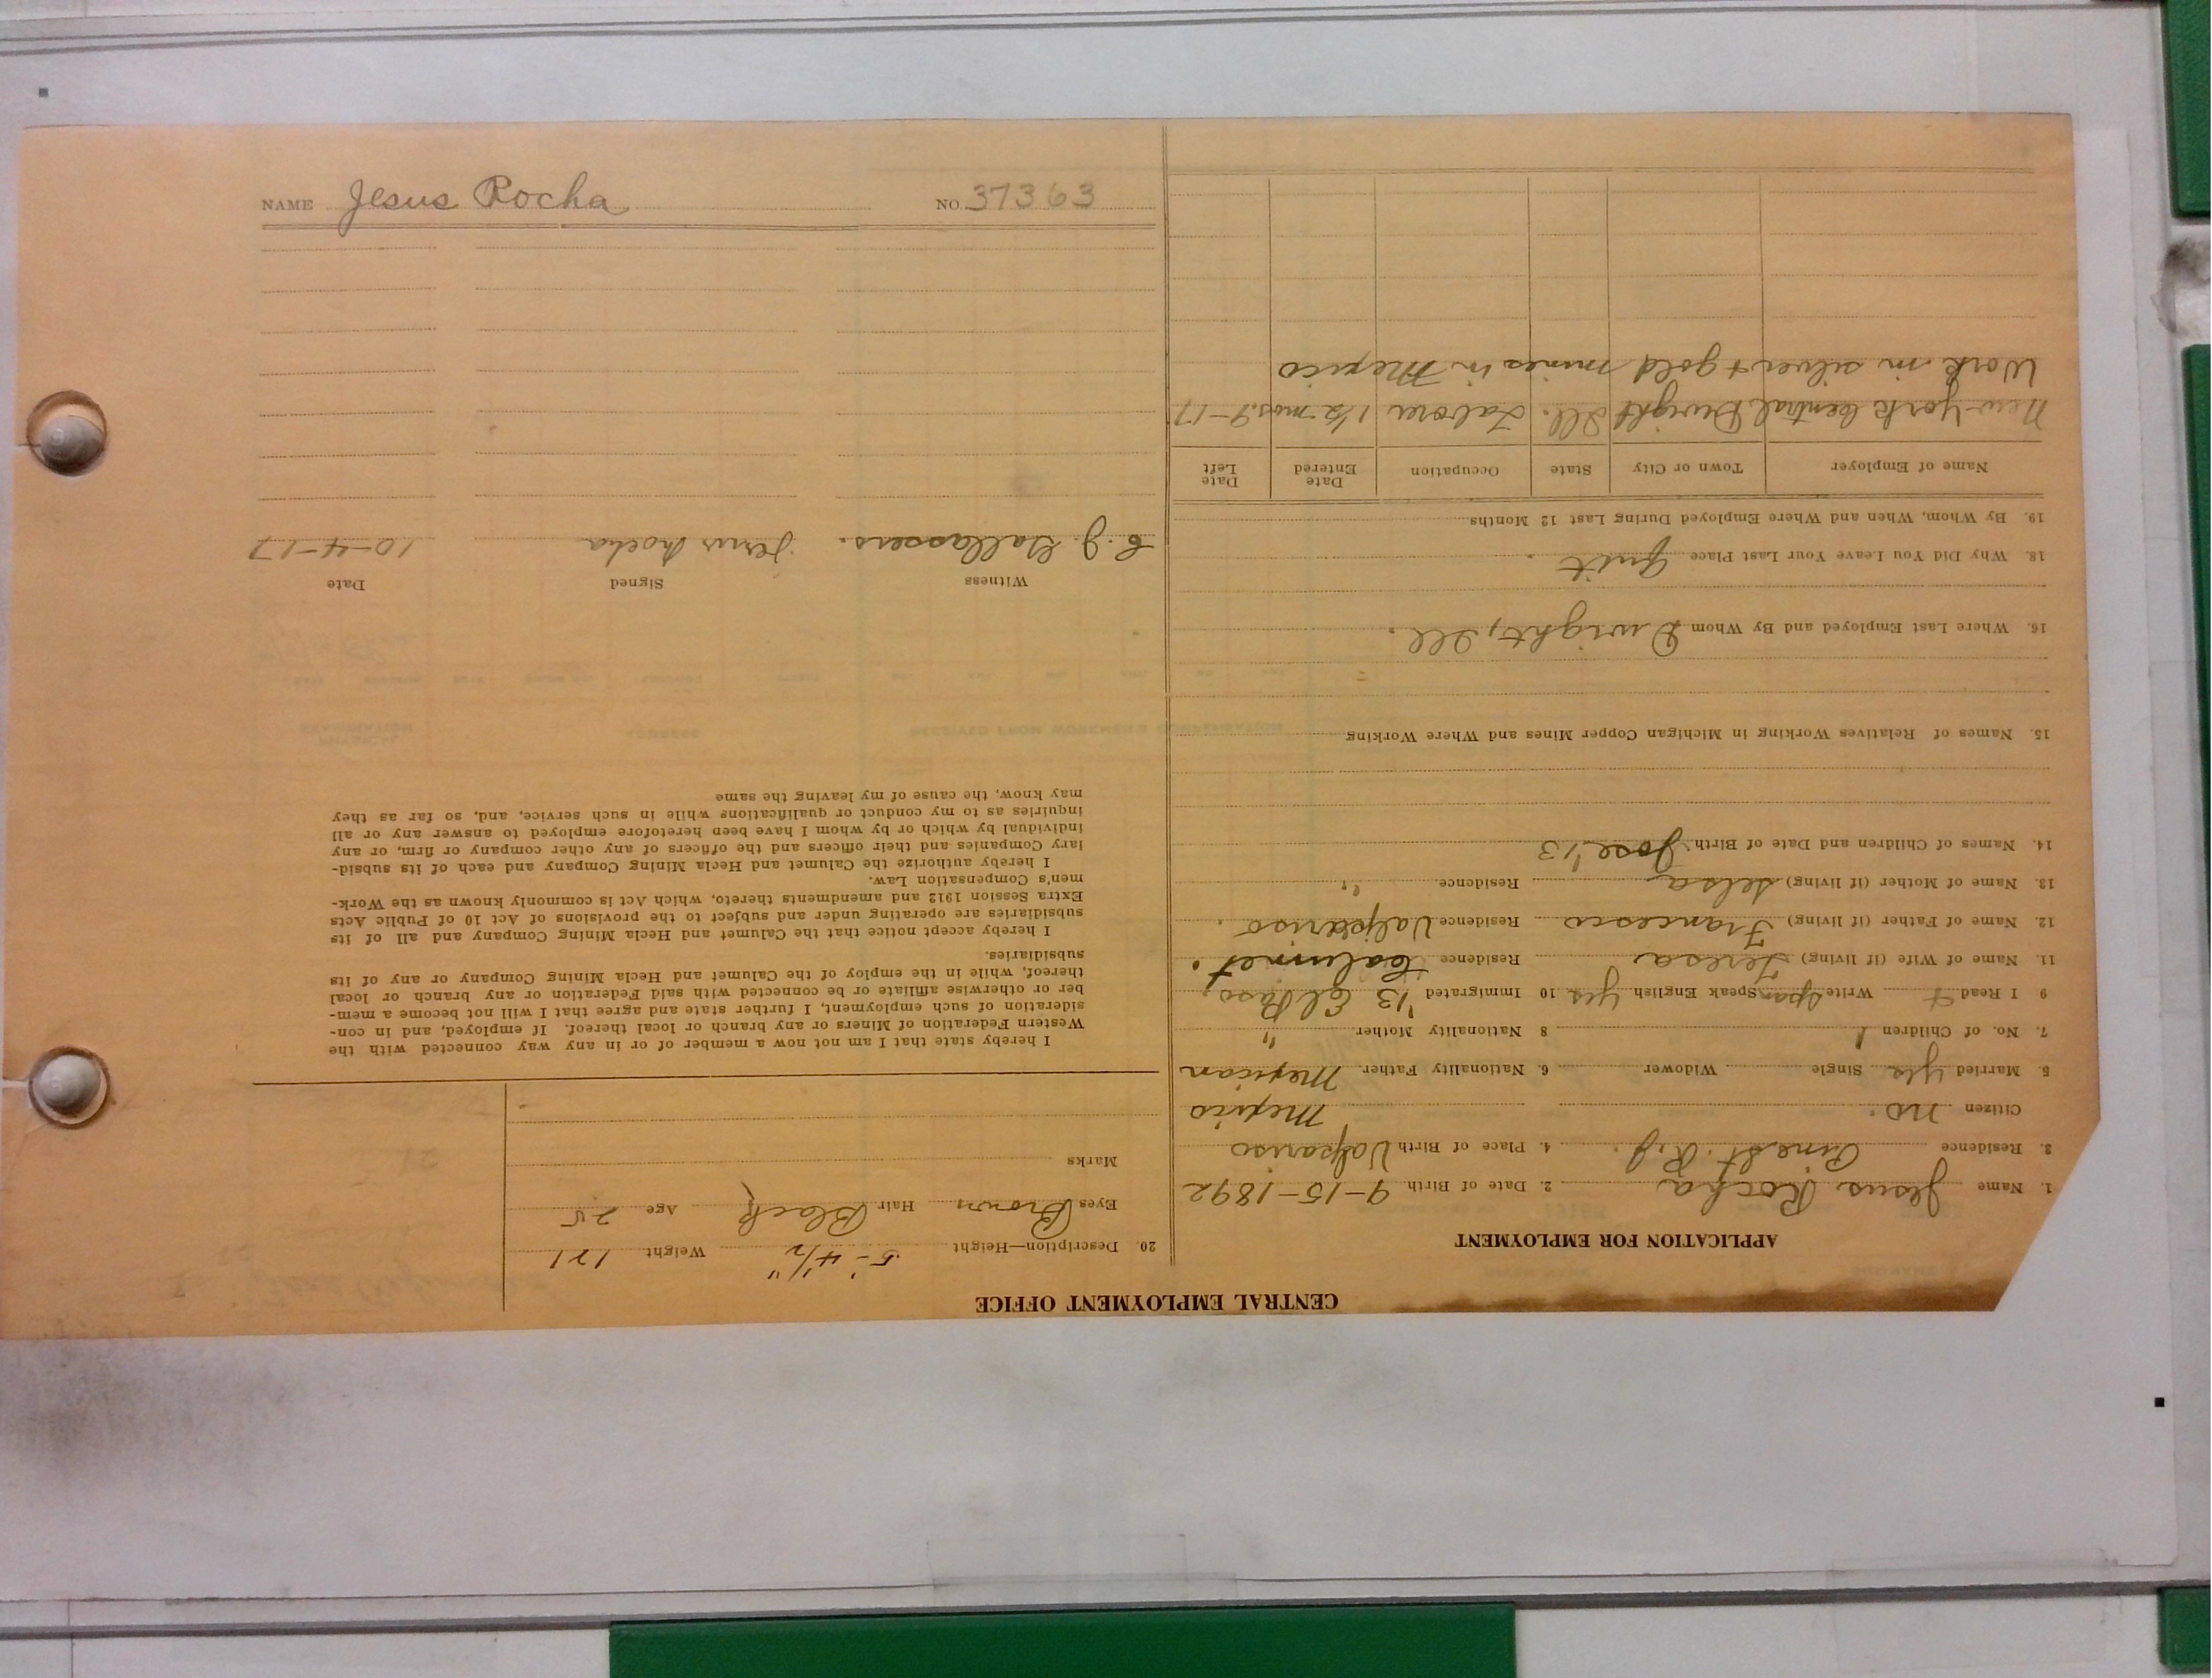 NAME Jesus Rocha NO. 37363
CENTRAL EMPLOYMENT OFFICE
APPLICATION FOR EMPLOYMENT
1. Name Jesus Rocha 2. Date of Birth 9-15-1892
3. Residence Pine St. 4. Place of Birth Valpariso
Citizen no. Mexico
5. Married yes Single Widower 6. Nationality Father Mexican
7. No. of Children 1 8 Nationality Mother "
9 I Read + Write Span Speak English yes 10 Immigrated '13 El Paso.
11. Name of Wife (if living) Teresa Residence Calumet.
12. Name of Father (if living) Francesco Residence Valpariso.
13. Name of Mother (if living) Selsa Residence "
14. Names of Children and Date of Birth Jose '13
15. Names of Relatives Working in Michigan Copper Mines and Where Working
16. Where Last Employed and By Whom Dwight, Ill.
18. Why Did You Leave Your Last Place quit
19. By Whom, When and Where Employed During Last 12 Months
Name of Employer Town or City State Occupation Date Entered Date Left
New York Central Dwight Ill. Labora 1½ mos. 9-17
Work in silver + gold mines in Mexico
20. Description—Height 5'-4½" Weight 121
Eyes Brown Hair Black Age 25
Marks
I hereby state that I am not now a member of or in any way connected with the
Western Federation of Miners or any branch or local thereof. If employed, and in con-
sideration of such employment, I further state and agree that I will not become a mem-
ber or otherwise affiliate or be connected with said Federation or any branch or local
thereof, while in the employ of the Calumet and Hecla Mining Company or any of its
subsidiaries.
I hereby accept notice that the Calumet and Hecla Mining Company and all of its
subsidiaries are operating under and subject to the provisions of Act 10 of Public Acts
Extra Session 1912 and amendments thereto, which Act is commonly known as the Work-
men's Compensation Law.
I hereby authorize the Calumet and Hecla Mining Company and each of its subsid-
iary Companies and their officers and the officers of any other company or firm, or any
individual by which or by whom I have been heretofore employed to answer any or all
inquiries as to my conduct or qualifications while in such service, and, so far as they
may know, the cause of my leaving the same
Witness Signed Date
Jesus Rocha 10-4-17